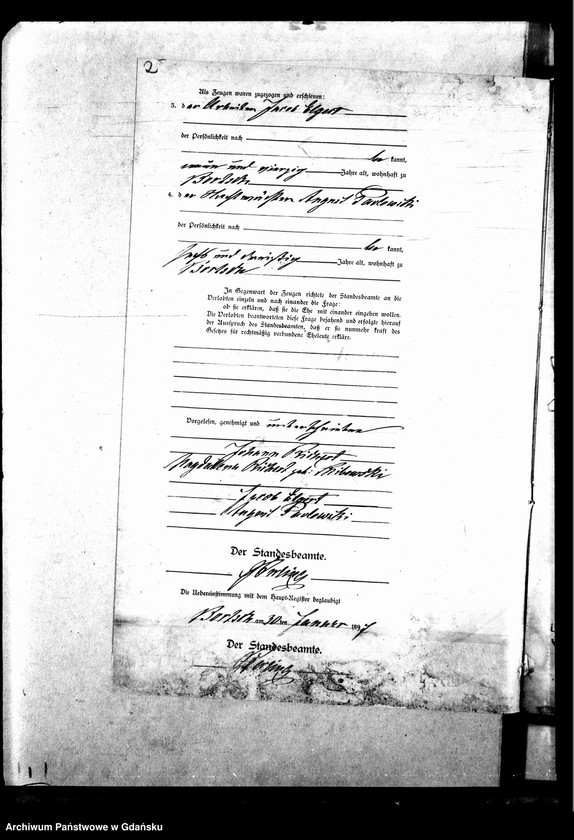 2
Als Zeugen waren zugezogen und erschienen:
3. der Arbeiter Jacob Elgert
der Persönlichkeit nach
be kannt,
neun und vierzig Jahre alt, wohnhaft zu
4. der August Pawlowski
der Persönlichkeit nach
be kannt,
sechs und dreißig Jahre alt, wohnhaft zu
In Gegenwart der Zeugen richtete der Standesbeamte an die
Verlobten einzeln und nach einander die Frage:
ob sie erklären, daß sie die Ehe mit einander eingehen wollen.
Die Verlobten beantworteten diese Frage bejahend und erfolgte hierauf
der Ausspruch des Standesbeamten, daß er sie nunmehr kraft des
Gesetzes für rechtmäßig verbundene Eheleute erkläre.
Vorgelesen, genehmigt und unterschrieben
Johann
Magdalena geb:
Jacob Elgert
August Pawlowski
Der Standesbeamte.
Die Uebereinstimmung mit dem Haupt-Register beglaubigt
am 30 ten Januar 1897
Der Standesbeamte.
Archiwum Państwowe w Gdańsku